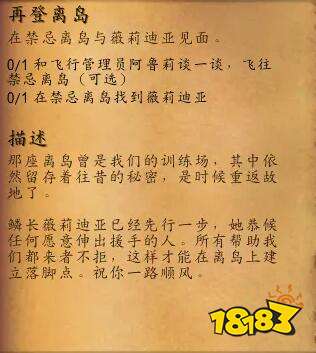 再登离岛
在禁忌离岛与薇莉迪亚见面。
0/1 和飞行管理员阿鲁莉谈一谈，飞往
禁忌离岛（可选）
0/1 在禁忌离岛找到薇莉迪亚
描述
那座离岛曾是我们的训练场，其中依
然留存着往昔的秘密，是时候重返故
地了。
鳞长薇莉迪亚已经先行一步，她恭候
任何愿意伸出援手的人。所有帮助我
们都来者不拒，这样才能在离岛上建
立落脚点。祝你一路顺风。
18183